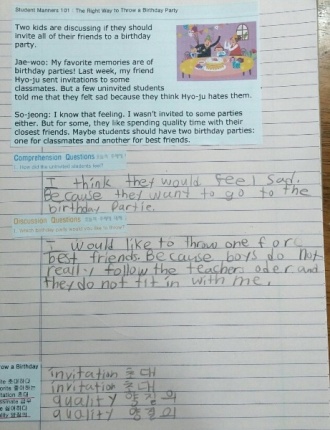 Student Manners 101 : The Right Way to Throw a Birthday Party
Two kids are discussing if they should
invite all of their friends to a birthday
party.
Jae-woo: My favorite memories are of
birthday parties! Last week, my friend
Hyo-ju sent invitations to some
classmates. But a few uninvited students
told me that they felt sad because they think Hyo-ju hates them.
So-jeong: I know that feeling. I wasn't invited to some parties
either. But for some, they like spending quality time with their
closest friends. Maybe students should have two birthday parties:
one for classmates and another for best friends.
Comprehension Questions
1. How did the uninvited students feel?
I think they would feel sad.
Because they want to go to the
birthday Partie.
Discussion Questions
1. Which birthday party would you like to throw?
I would like to throw one forc
best friends. Because boys do not
really follow the teachers oder and
they do not fit in with me.
ow a Birthday
invitation 초대
invitation 초대
quality 양질의
quality 양질의